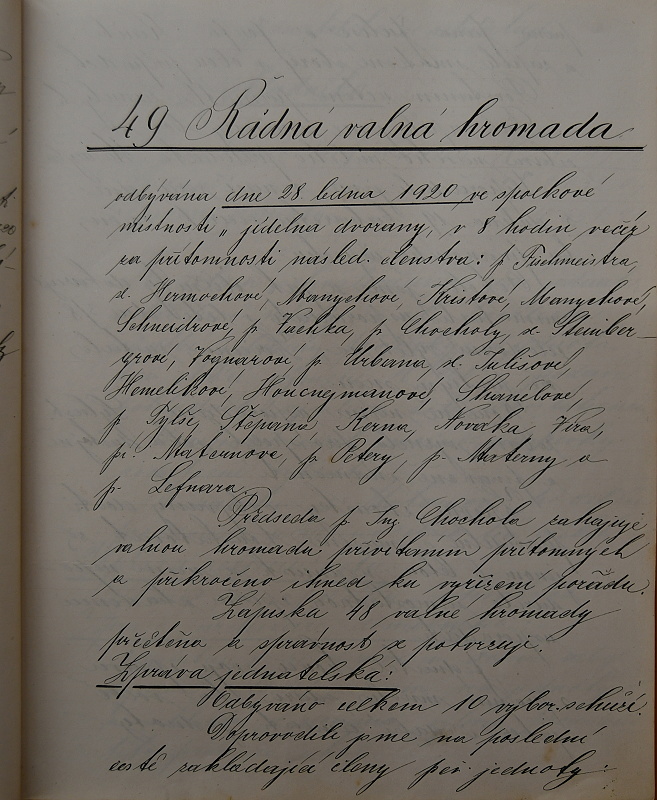 49 Řádná valná hromada
odbývána dne 28. ledna 1920 ve spolkové
místnosti „ jídelna dvorany, v 8 hodin večer
za přítomnosti násled. členstva: p. Fuchmeistra,
sl. Hermochové, Manychové, Kristové, Manychové,
Schneidrové, p. Vachka, p. Chocholy, sl. Steinber-
grové, Vognarové p. Urbana, sl. Tulišové,
Hemelíkové, Houcnejmanové, Skanélové,
p. Tylše, Štěpána, Kerna, Nováka Víta,
pí. Maternové, p. Petery, p. Materny a
p. Lefnara.
Předseda p. Ing. Chochola zahajuje
valnou hromadu přivítáním přítomných
a přikročeno ihned ku vyřízení pořadu.
Zápiska 48 valné hromady
přečtena a správnost se potvrzuje.
Zpráva jednatelská:
Odbýváno celkem 10 výbor. schůzí.
Doprovodili jsme na poslední
cestě zakládající členy pěv. jednoty: